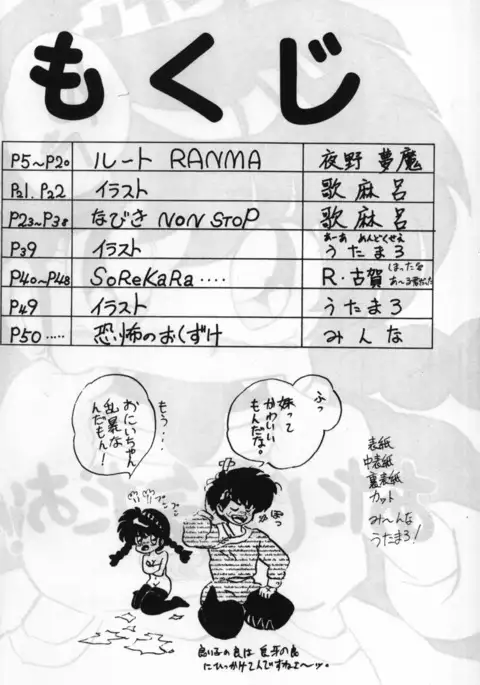 もくじ
P5～P20 ルート RANMA 夜野 夢魔
P21.P22 イラスト 歌麻呂
P23～P38 なびき NON STOP 歌麻呂
P39 イラスト あーあ めんどくせえ うたまろ
P40～P48 SoReKaRa‥‥ R・古賀
P49 イラスト うたまろ
P50‥‥‥ 恐怖のおくずけ みんな
ふっ
妹って
かわいい
もんだな。
もう‥‥
おにいちゃん
乱暴な
んだもん！
プン
プン
ぽっ
表紙
中表紙
裏表紙
カット
み～んな
うたまろ！
良い子の良は 良牙の良
にひっかけてんですねぇ～ッ。